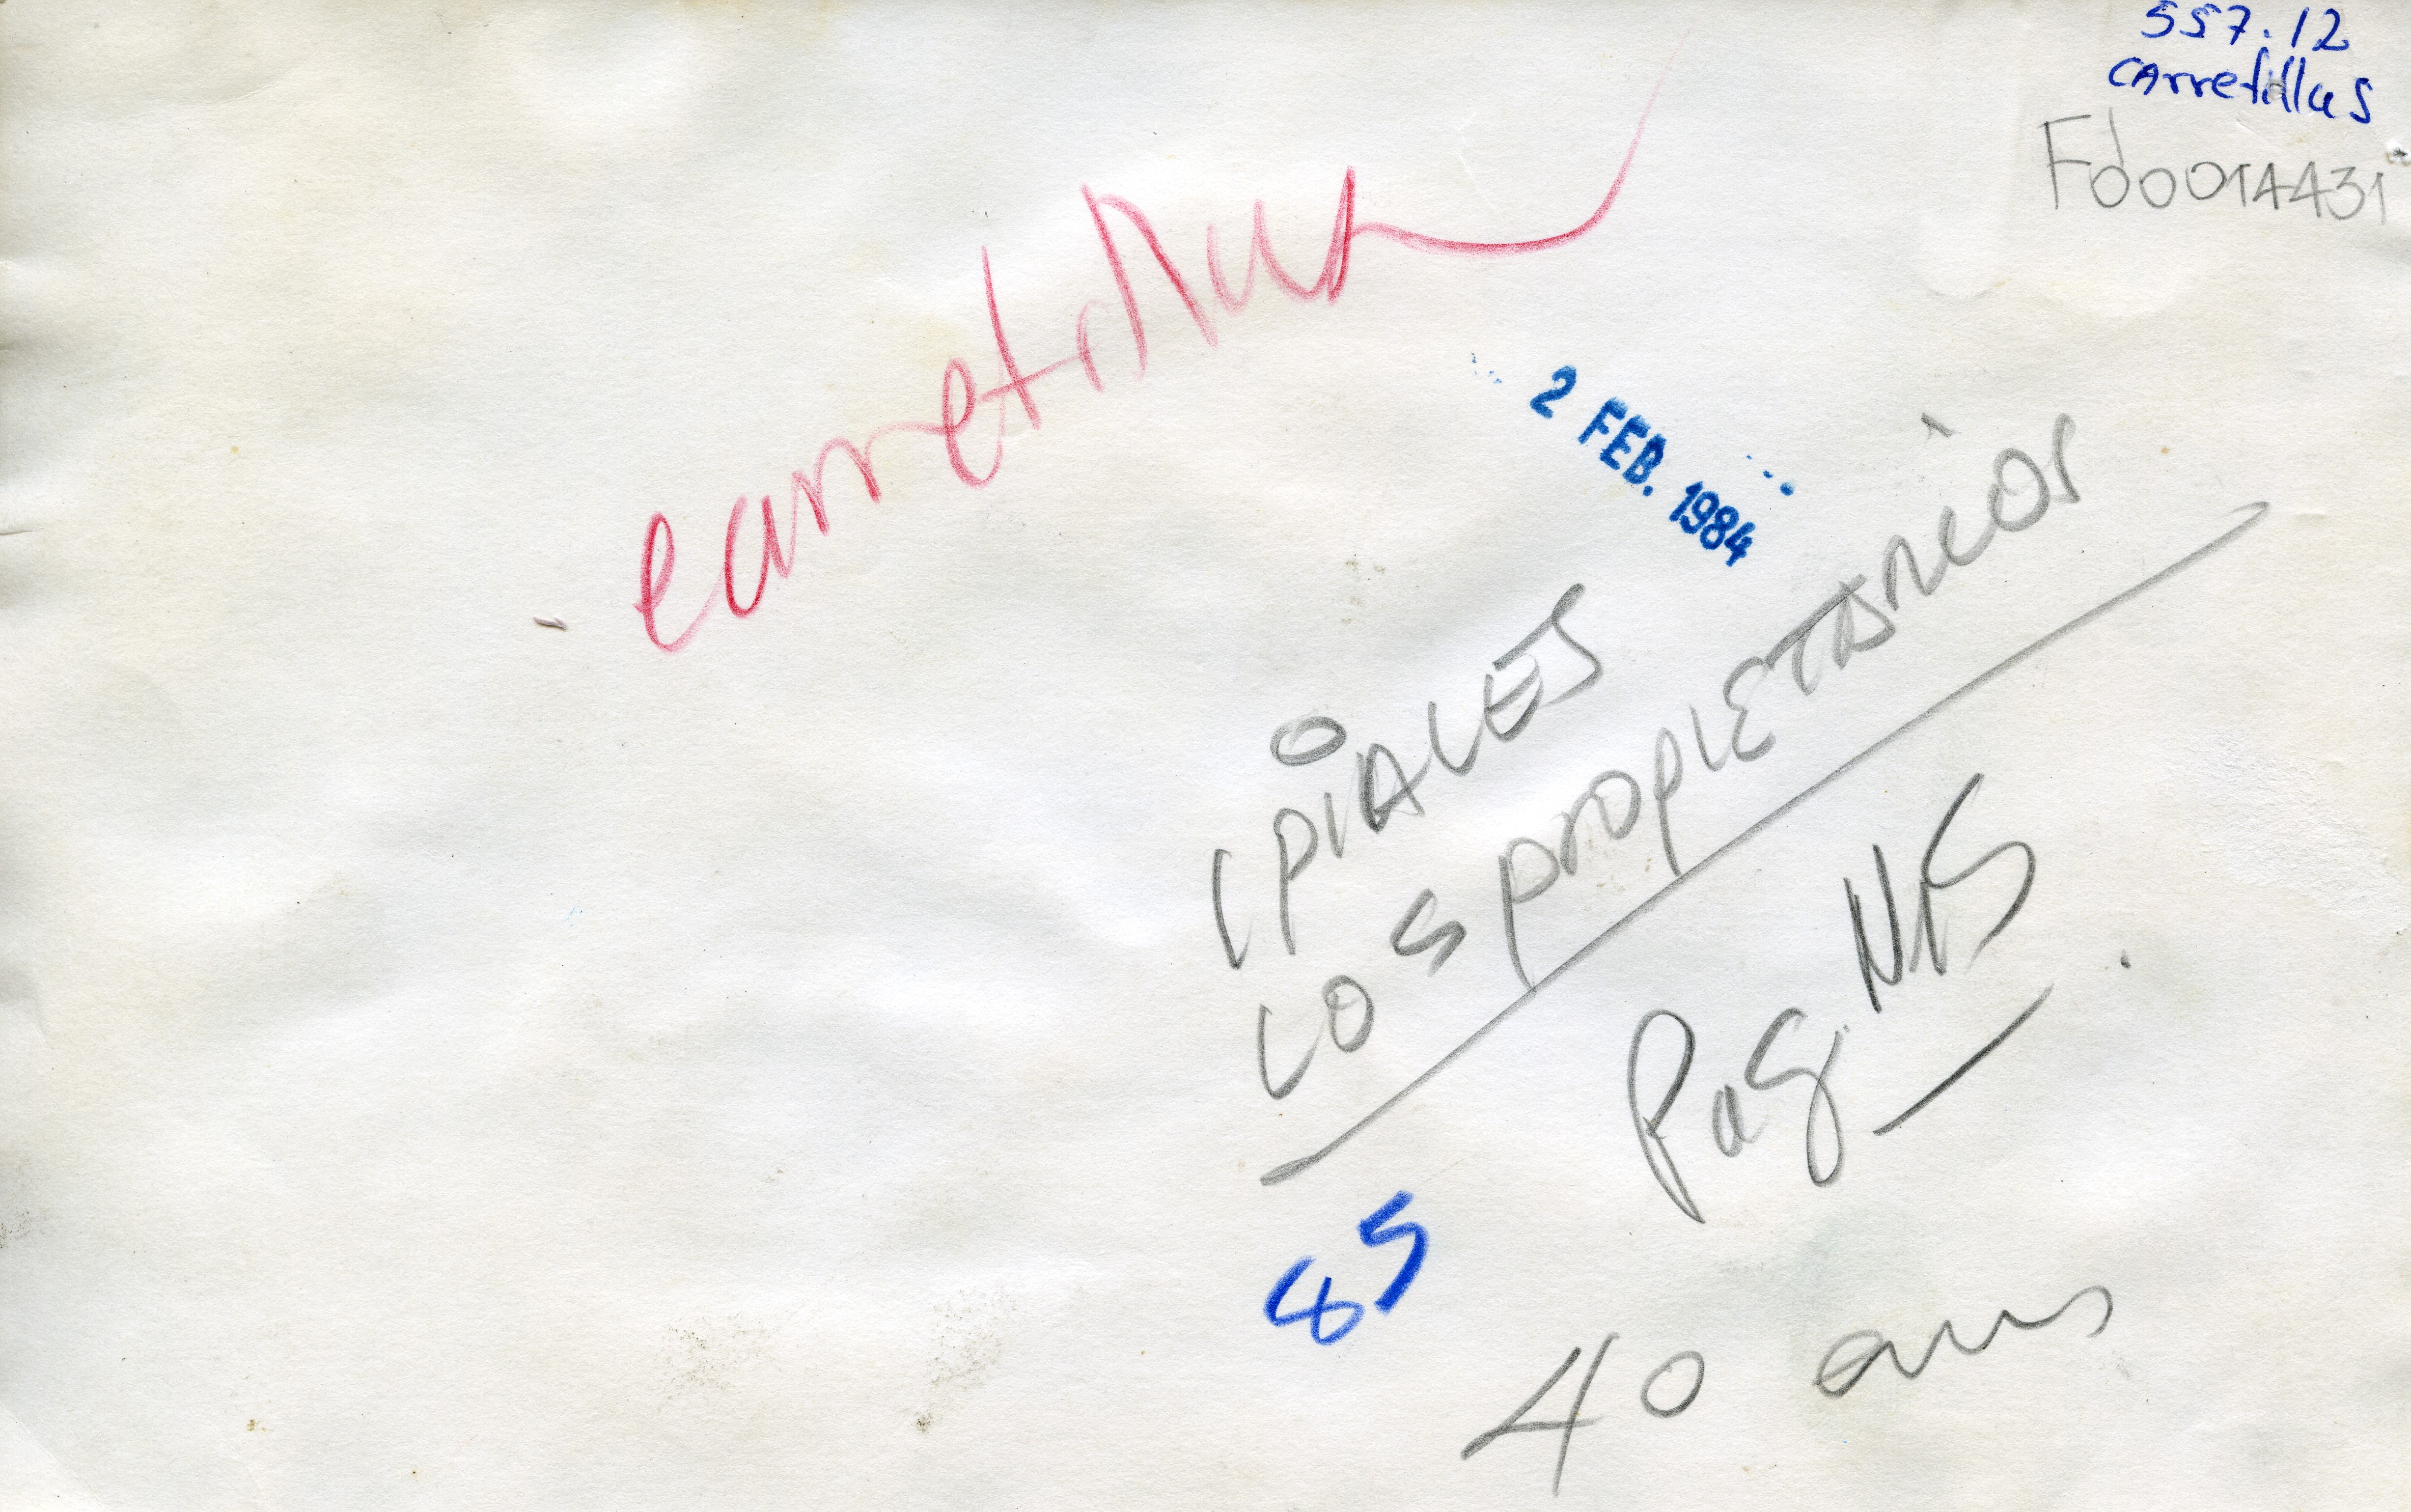 557.12
CArretillas
Fd0014431
carretillas
2 FEB. 1984
IPIALES
LOS PROPIETARIOS
Pag.
85
40 ans